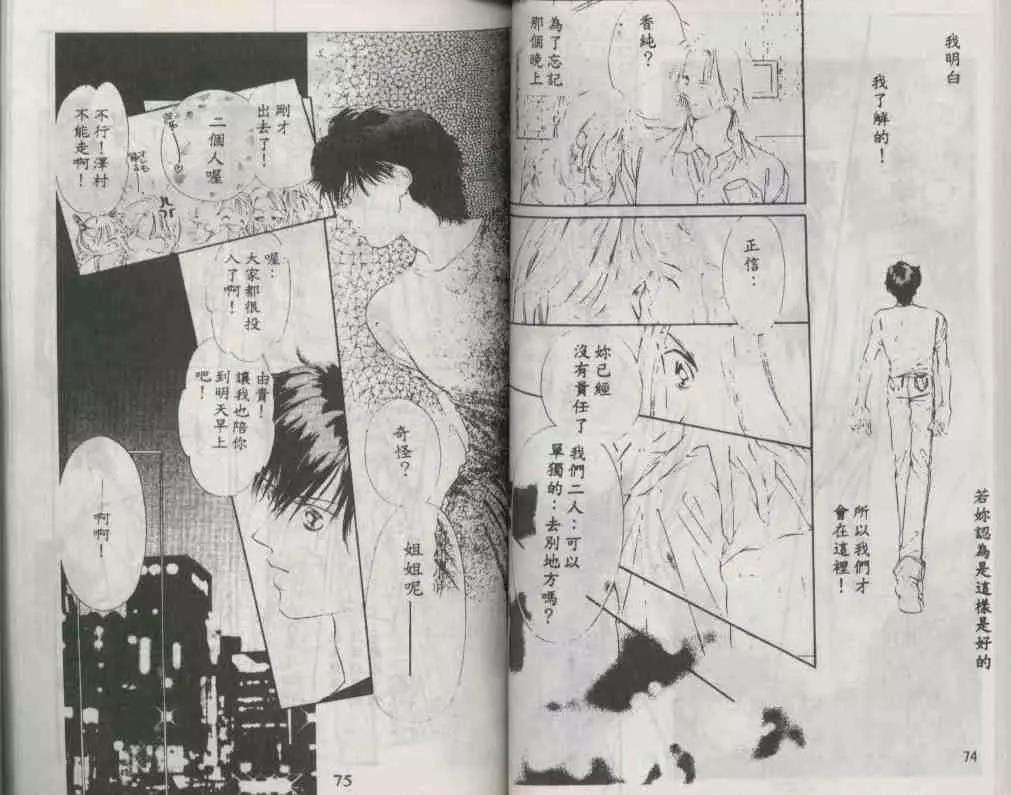 我明白
我了解的！
所以我們才
會在這裡！
若妳認為是這樣是好的
香純？
為了忘記
那個晚上
正信：
妳已經
沒有責任了
我們二人：可以
單獨的：去別地方嗎？
74
奇怪？
姐姐呢——
剛才
出去了！
二個人喔
不行！澤村
不能走啊！
喔：
大家都很投
入了啊！
由貴！
讓我也陪你
到明天早上
吧！
——啊啊！
75